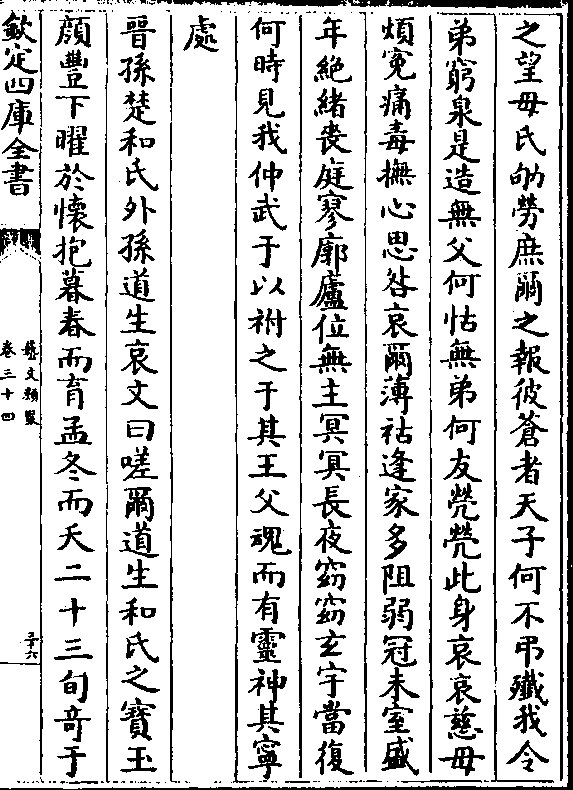 之望毋氏劬勞庶爾之報彼蒼者天子何不弔殲我令
弟窮泉是造無父何怙無弟何友煢煢此身哀哀慈母
煩寃痛毒撫心思咎哀爾薄祜逢家多阻弱冠未室盛
年絶緒喪庭寥廓廬位無主冥冥長夜窈窈玄宇當復
何時見我仲武于以祔之于其王父魂而有靈神其寧
處
晉孫楚和氏外孫道生哀文曰嗟爾道生和氏之寶玉
顔豐下曜於懷抱暮春而育孟冬而夭二十三旬竒于
欽定四庫全書
藝文類聚
卷三十四
三十六